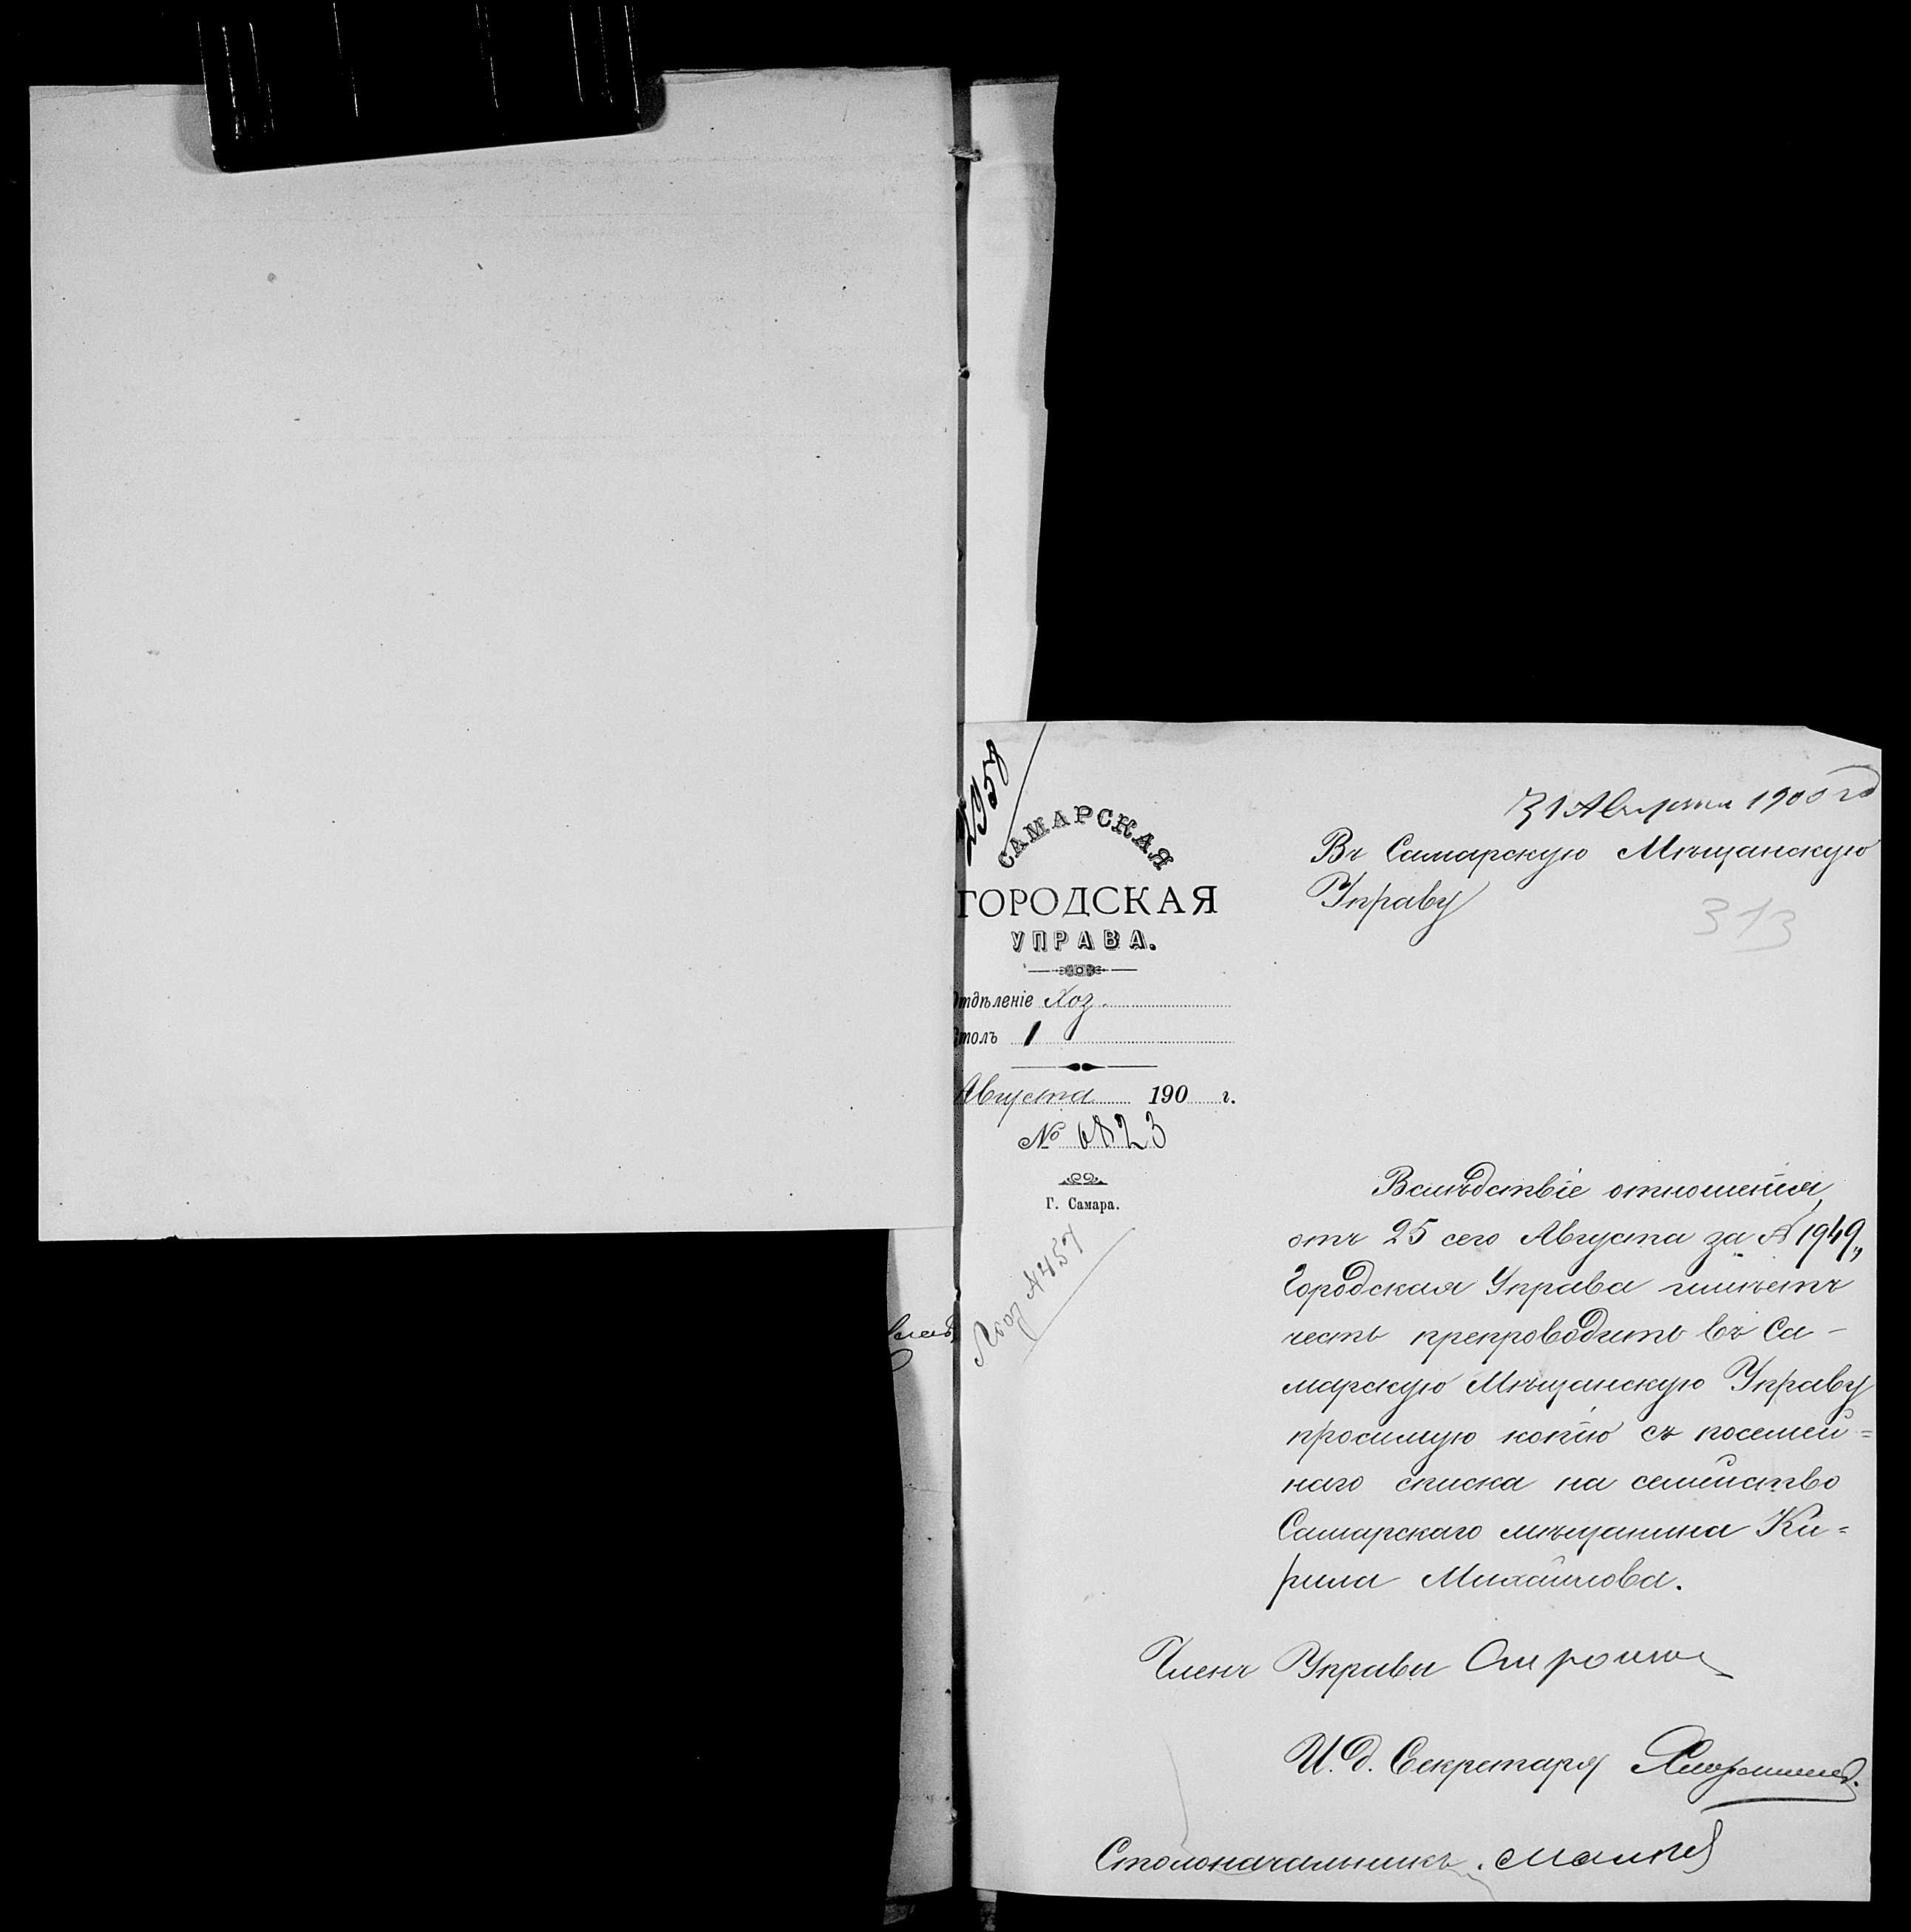 2958
САМАРСКАЯ
ГОРОДСКАЯ
УПРАВА.
Отдѣленіе Хоз.
Столъ 1
Августа 190 г.
№ 6823
Г. Самара.
31 Августа 1900 г.
Въ Самарскую Мѣщанскую
Управу
313
Вслѣдствіе отношенія
отъ 25 сего Августа за № 1949,
Городская Управа имѣетъ
честь препроводить въ Са-
марскую Мѣщанскую Управу
просимую копію съ посемей=
наго списка на семейство
Самарскаго мѣщанина Ки=
рила Михайлова.
Членъ Управы
И. д. Секретаря
Столоначальникъ